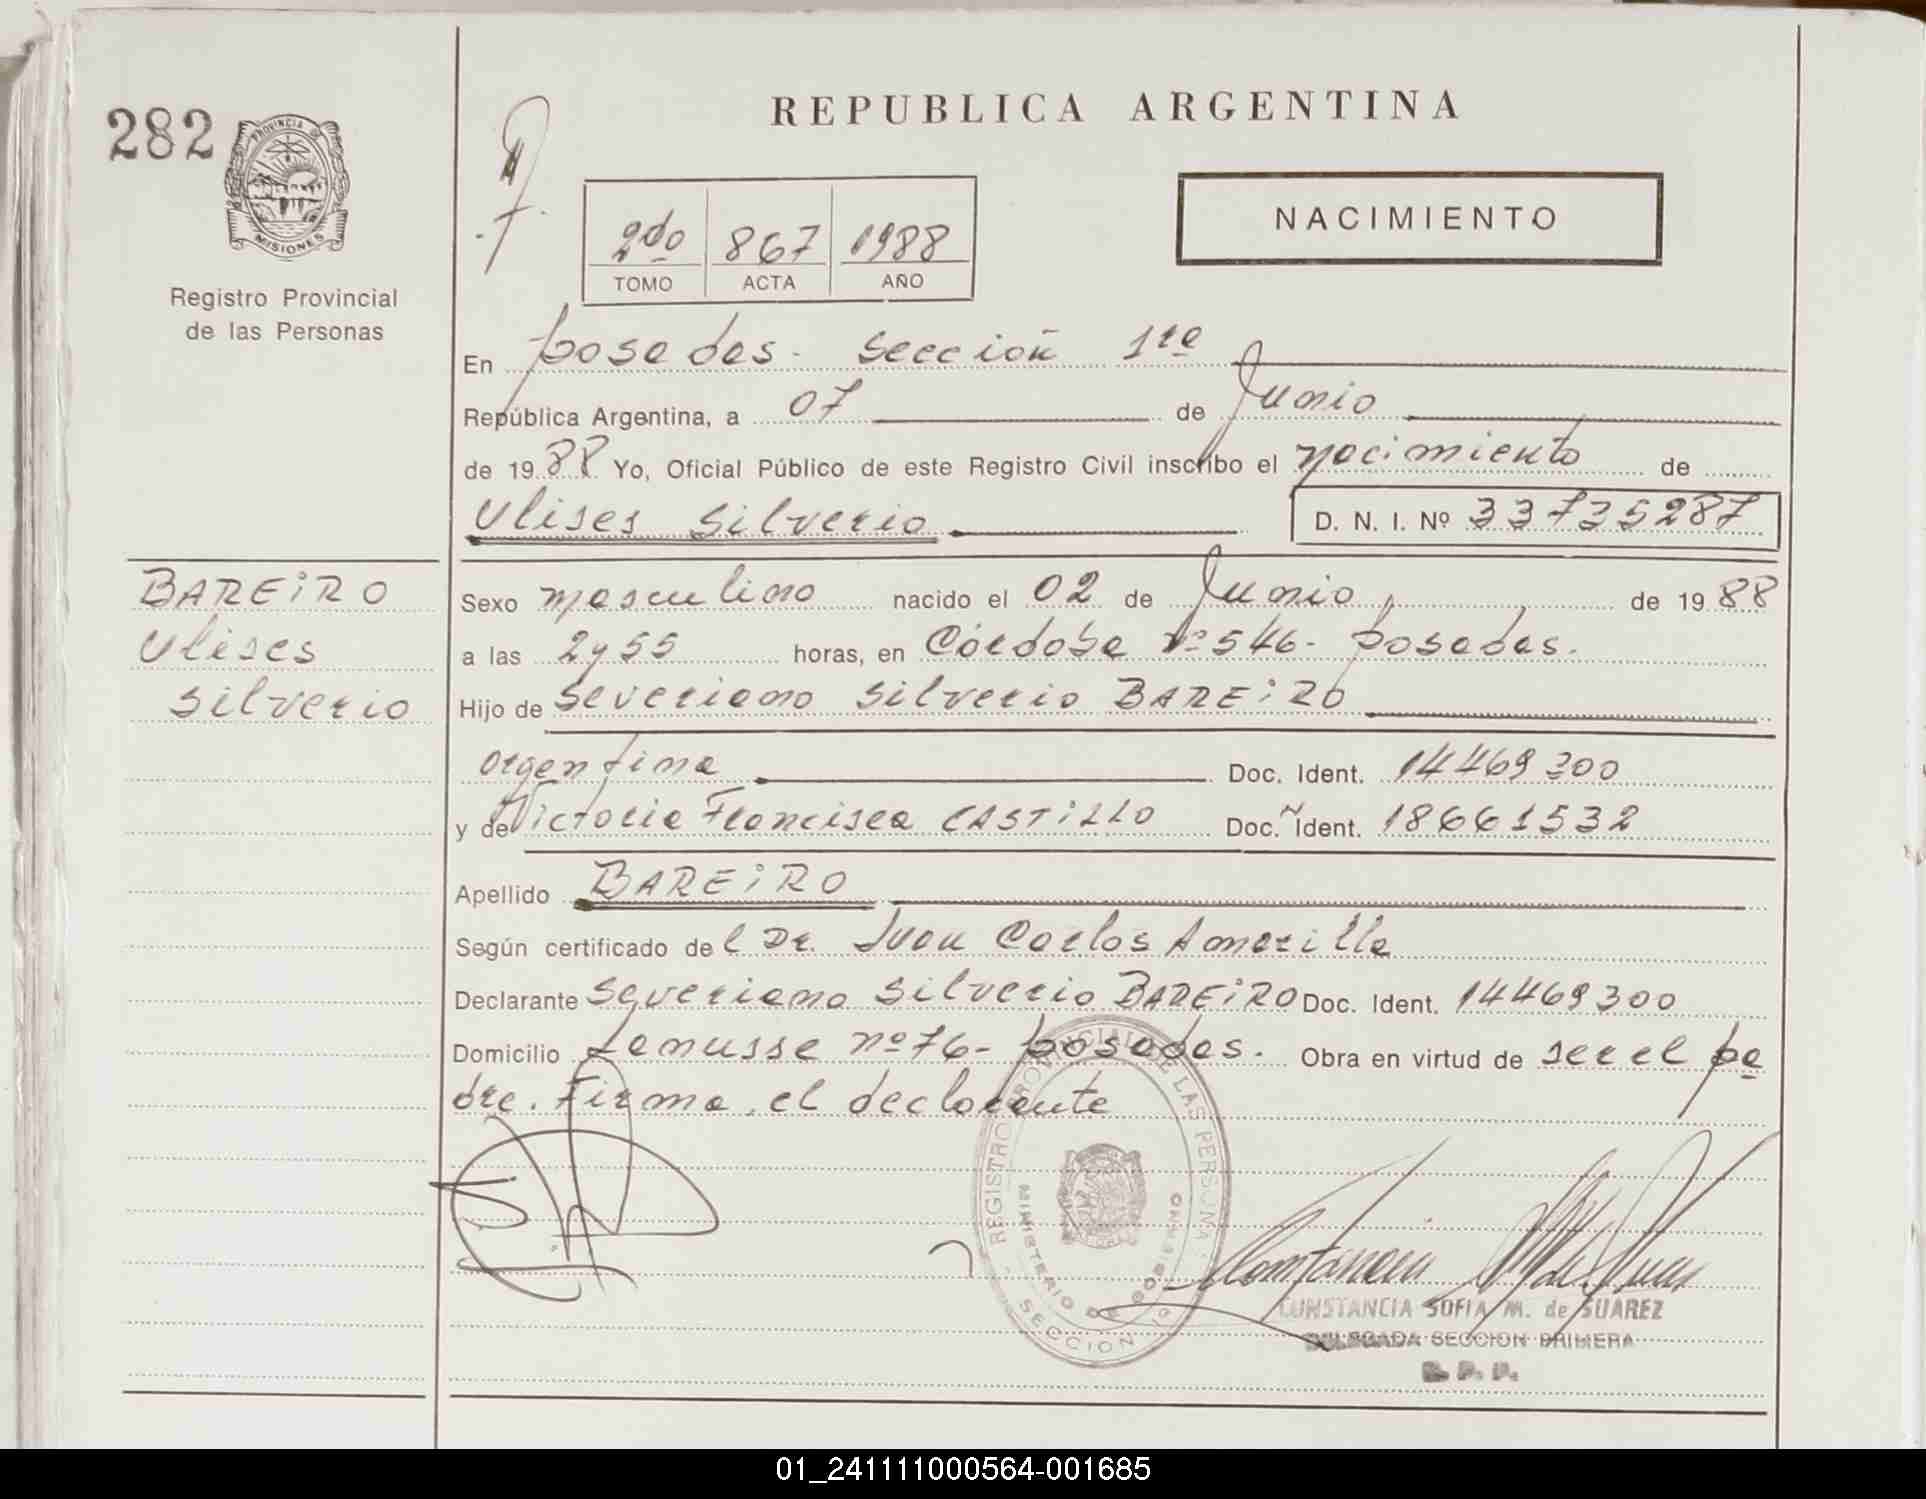 REPUBLICA ARGENTINA
282
PROVINCIA DE
MISIONES
Registro Provincial
de las Personas
NACIMIENTO
2do 867 1988
TOMO ACTA AÑO
En Posadas - Sección 1ra
República Argentina, a 07 de Junio
de 1988 Yo, Oficial Público de este Registro Civil inscribo el nacimiento de
Ulises Silverio D. N. I. Nº 33735287
BAREiRO
Ulises
Silverio
Sexo masculino nacido el 02 de Junio, de 1988
a las 2 y 55 horas, en Córdoba Nº 546 - Posadas.
Hijo de Severiano Silverio BAREiRO
argentina Doc. Ident. 14469300
y de Victoria Francisca CASTiLLO Doc. Ident. 18661532
Apellido BAREiRO
Según certificado del Dr. Juan Carlos Amarilla
Declarante Severiano Silverio BAREiRO Doc. Ident. 14469300
Domicilio Lanusse nº 76 - Posadas. Obra en virtud de ser el pa
dre. Firma el declarante
REGISTRO PROVINCIAL DE LAS PERSONAS
MINISTERIO DE GOBIERNO
SECCION 1ª
CONSTANCIA SOFIA M. de SUAREZ
DELEGADA SECCION PRIMERA
R. P. P.
01_241111000564-001685